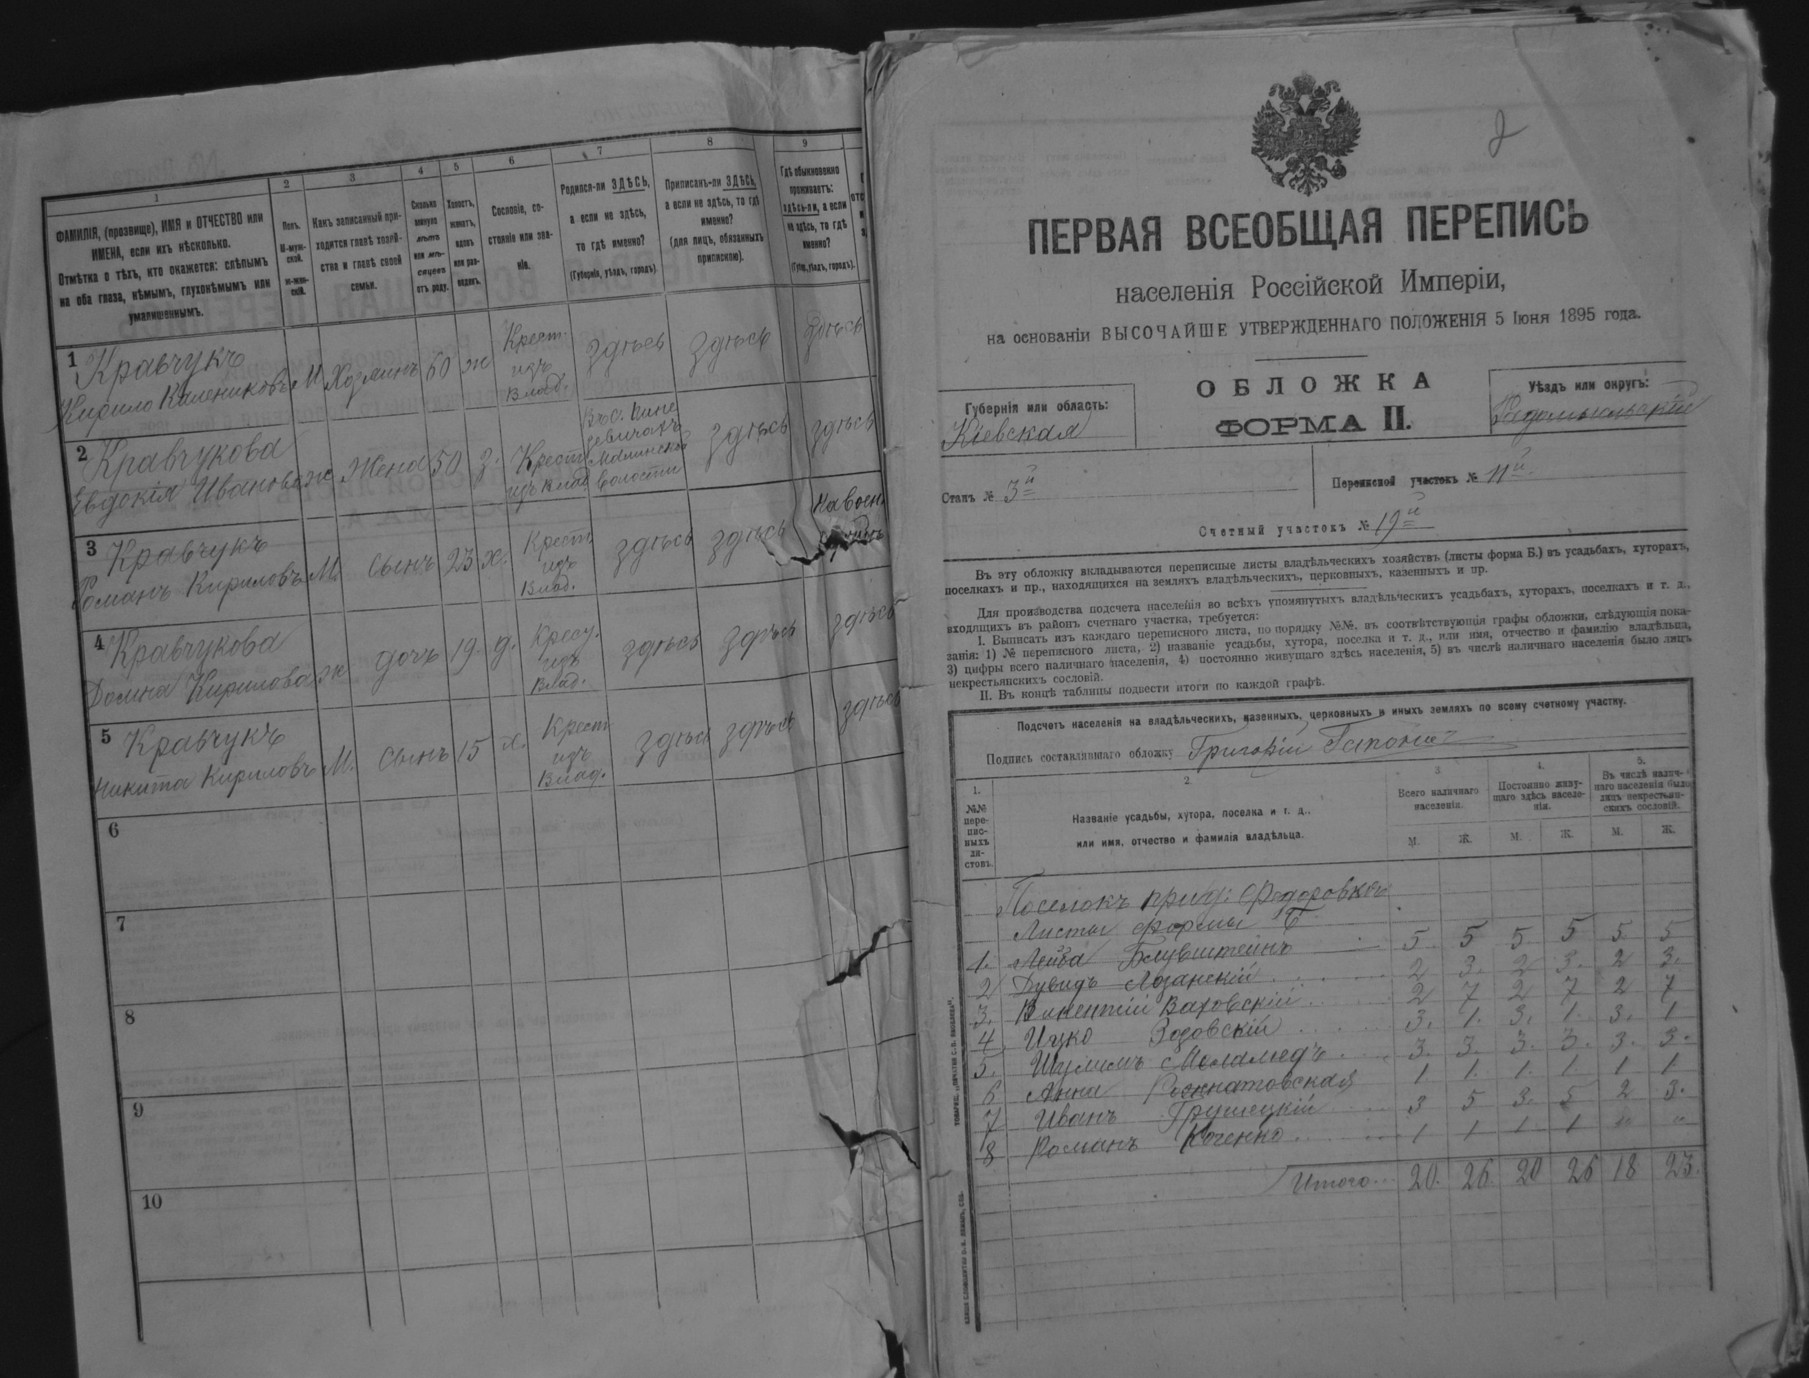 1
2
3
4
5
6
7
8
9
ФАМИЛІЯ, (прозвище), ИМЯ и ОТЧЕСТВО или
ИМЕНА, если ихъ нѣсколько.
Отмѣтка о тѣхъ, кто окажется: слѣпымъ
на оба глаза, нѣмымъ, глухонѣмымъ или
умалишеннымъ.
Полъ.
М-муж-
ской.
Ж-жен-
скій.
Какъ записанный при-
ходится главѣ хозяй-
ства и главѣ своей
семьи.
Сколько
минуло
лѣтъ
или мѣ-
сяцевъ
отъ роду.
Холостъ,
женатъ,
вдовъ
или раз-
веденъ.
Сословіе, со-
стояніе или зва-
ніе.
Родился-ли ЗДѢСЬ,
а если не здѣсь,
то гдѣ именно?
(Губернія, уѣздъ, городъ).
Приписанъ-ли ЗДѢСЬ,
а если не здѣсь, то гдѣ
именно?
(для лицъ, обязанныхъ
припискою).
Гдѣ обыкновенно
проживаетъ:
здѣсь-ли, а если
не здѣсь, то гдѣ
именно?
(Губ., уѣздъ, городъ).
1 Кравчукъ
Кирило Калениковъ М Хозяинъ 60 ж Крест. изъ Влад. здѣсь здѣсь здѣсь
2 Кравчукова
Евдокія Иванова ж Жена 50 з. Крест. изъ влад. Въ с. волости здѣсь здѣсь
3 Кравчукъ
Романъ Кириловъ М. Сынъ 23 х. Крест. изъ Влад. здѣсь здѣсь На воен.
4 Кравчукова
Домна Кирилова ж дочь 19. д. Крест. изъ Влад. здѣсь здѣсь здѣсь
5 Кравчукъ
Никита Кириловъ М. Сынъ 15 х. Крест. изъ Влад. здѣсь здѣсь здѣсь
6
7
8
9
10
2
ПЕРВАЯ ВСЕОБЩАЯ ПЕРЕПИСЬ
населенія Россійской Имперіи,
на основаніи ВЫСОЧАЙШЕ УТВЕРЖДЕННАГО ПОЛОЖЕНІЯ 5 Іюня 1895 года.
ОБЛОЖКА
ФОРМА II.
Губернія или область:
Кіевская
Уѣздъ или округъ:
Радомысльскій
Станъ № 3й
Переписной участокъ № 11й.
Счетный участокъ № 19й
Въ эту обложку вкладываются переписные листы владѣльческихъ хозяйствъ (листы форма Б.) въ усадьбахъ, хуторахъ,
поселкахъ и пр., находящихся на земляхъ владѣльческихъ, церковныхъ, казенныхъ и пр.
Для производства подсчета населенія во всѣхъ упомянутыхъ владѣльческихъ усадьбахъ, хуторахъ, поселкахъ и т. д.,
входящихъ въ районъ счетнаго участка, требуется:
I. Выписать изъ каждаго переписного листа, по порядку №№, въ соотвѣтствующія графы обложки, слѣдующія пока-
занія: 1) № переписного листа, 2) названіе усадьбы, хутора, поселка и т. д., или имя, отчество и фамилію владѣльца,
3) цифры всего наличнаго населенія, 4) постоянно живущаго здѣсь населенія, 5) въ числѣ наличнаго населенія было лицъ
некрестьянскихъ сословій.
II. Въ концѣ таблицы подвести итоги по каждой графѣ.
Подсчетъ населенія на владѣльческихъ, казенныхъ, церковныхъ и иныхъ земляхъ по всему счетному участку.
Подпись составлявшаго обложку Григорій
1.
№№
пере-
пис-
ныхъ
ли-
стовъ.
2.
Названіе усадьбы, хутора, поселка и т. д.,
или имя, отчество и фамилія владѣльца.
3.
Всего наличнаго
населенія.
4.
Постоянно живу-
щаго здѣсь населе-
нія.
5.
Въ числѣ налич-
наго населенія было
лицъ некрестьян-
скихъ сословій.
М. Ж. М. Ж. М. Ж.
Поселокъ при Федоровкѣ
Листы формы Б
1. Лейба Блувштейнъ 5 5 5 5 5 5
2 Дувидъ Лозанскій 2 3. 2 3. 2 3.
3. Викентій Ваховскій 2 7 2 7 2 7
4 Ицко 3. 1. 3. 1. 3. 1
5. Шулимъ Меламедъ 3. 3. 3. 3. 3. 3.
6 Анна 1 1. 1. 1. 1 1
7 Иванъ Грушецкій 3 5 3. 5 2 3.
8 Романъ Коченко 1 1 1 1 " "
Итого 20. 26 20 26 18 23.